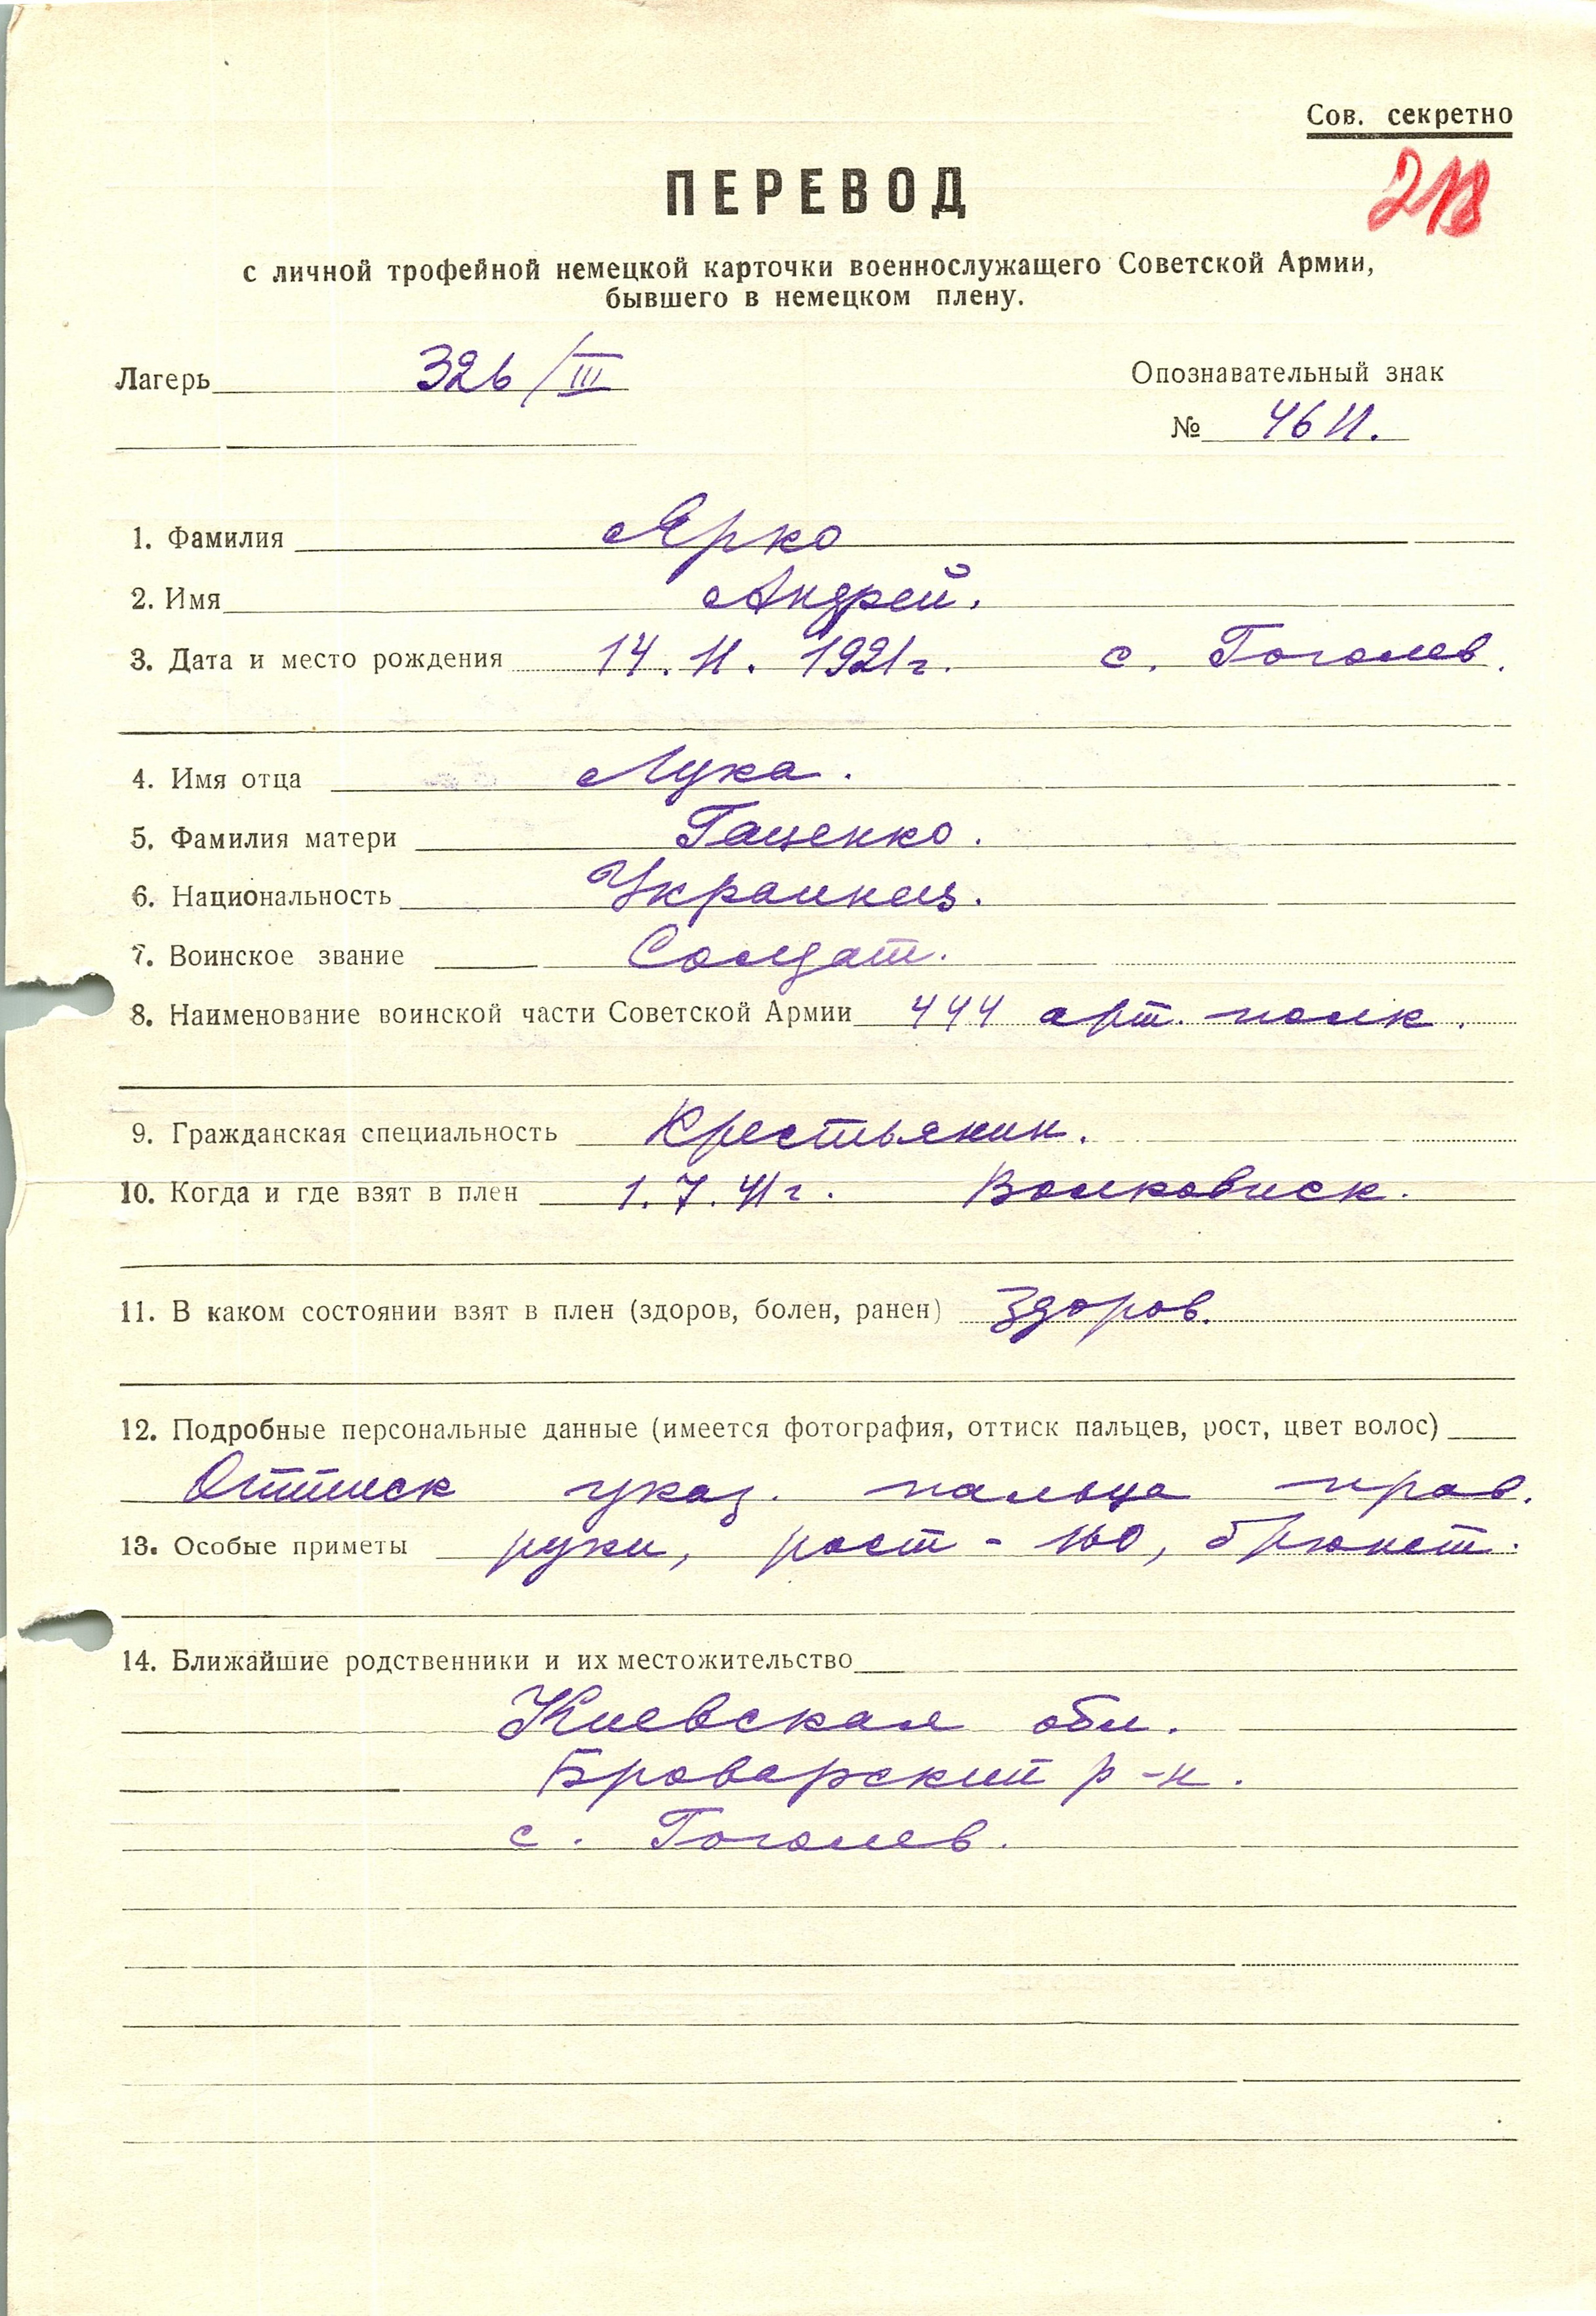 Сов. секретно
218
ПЕРЕВОД
с личной трофейной немецкой карточки военнослужащего Советской Армии,
бывшего в немецком плену.
Лагерь 326/III
Опознавательный знак
№ 4611.
1. Фамилия Ярко
2. Имя Андрей.
3. Дата и место рождения 14. 11. 1921г. с. Гоголев.
4. Имя отца Лука.
5. Фамилия матери Гаценко.
6. Национальность Украинец.
7. Воинское звание Солдат.
8. Наименование воинской части Советской Армии 444 арт. полк.
9. Гражданская специальность Крестьянин.
10. Когда и где взят в плен 1. 7. 41г. Волковиск.
11. В каком состоянии взят в плен (здоров, болен, ранен) здоров.
12. Подробные персональные данные (имеется фотография, оттиск пальцев, рост, цвет волос)
Оттиск указ. пальца прав.
13. Особые приметы руки, рост - 160, брюнет.
14. Ближайшие родственники и их местожительство
Киевская обл.
Броварский р-н.
с. Гоголев.